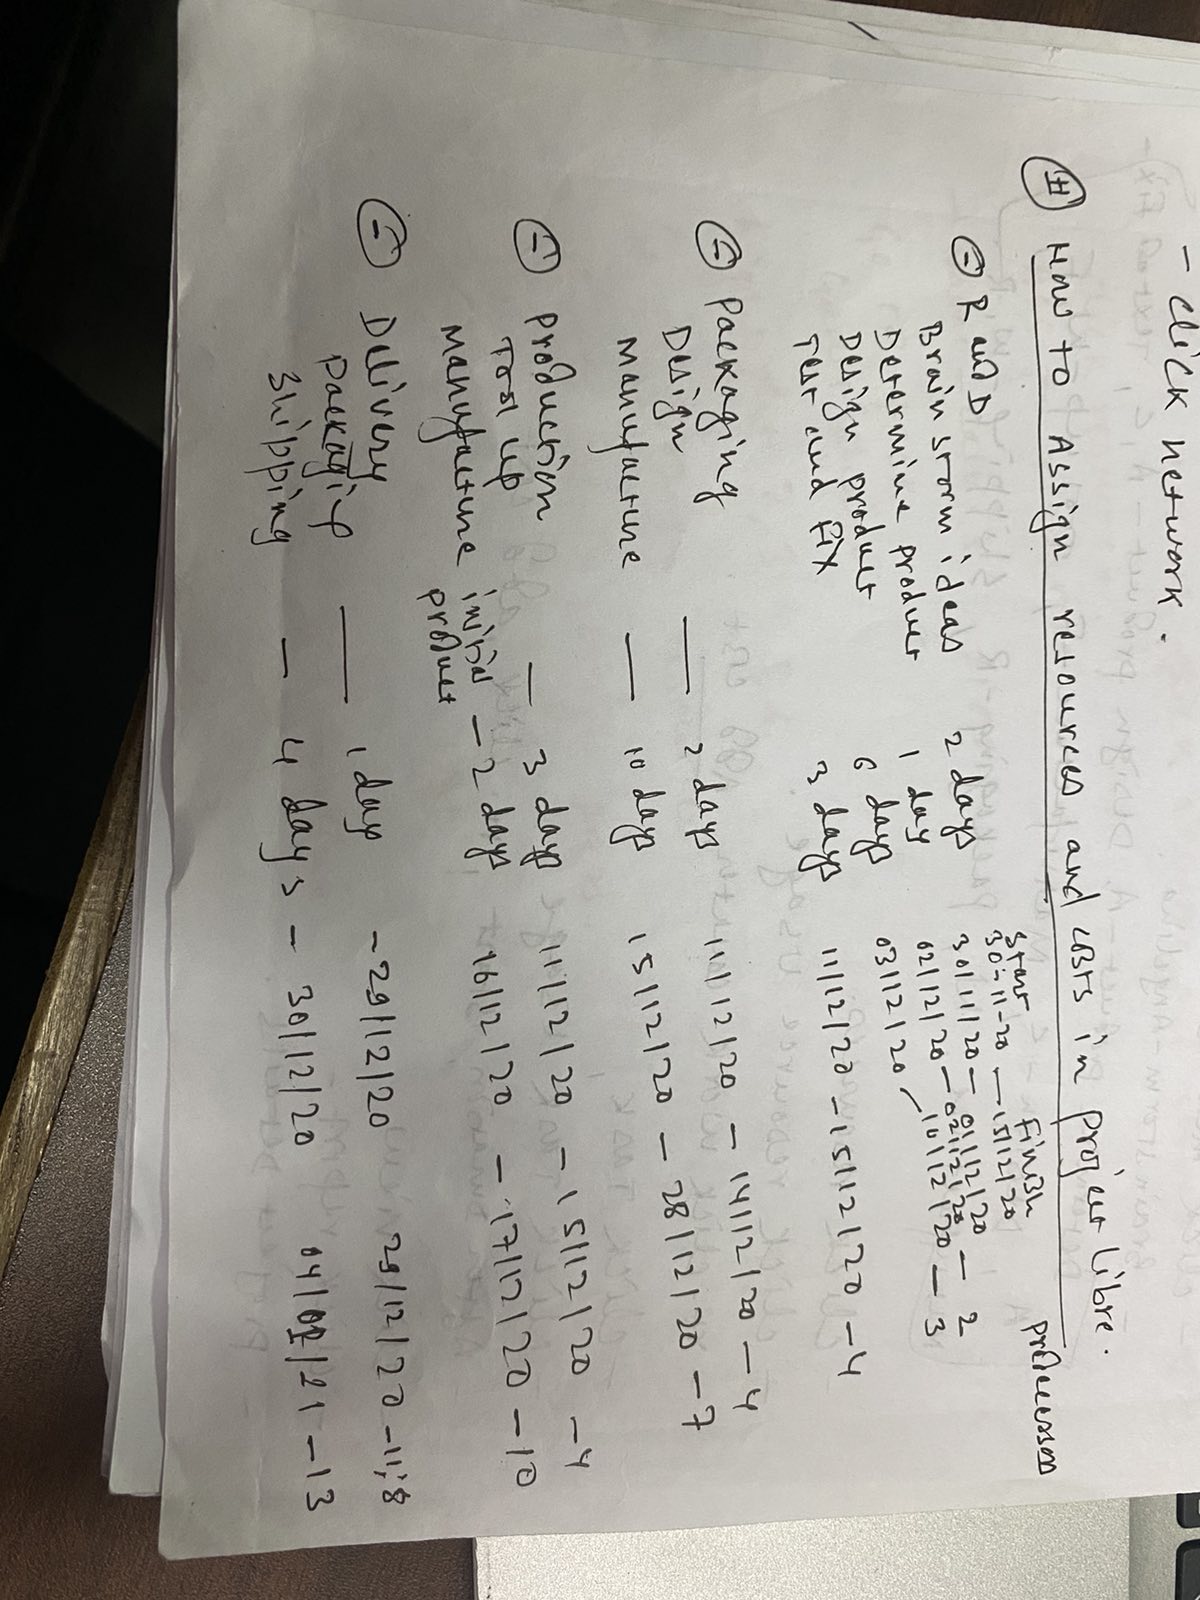 - Click Network.
# How to Assign resources and costs in project Libre.
Start Finish predecessors
- R and D 30-11-20 - 15/12/20
Brain storm ideas 2 days 30/11/20 - 01/12/20
Determine product 1 day 02/12/20 - 02/12/20 - 2
Design product 6 days 03/12/20 - 10/12/20 - 3
Test and fix 3 days 11/12/20 - 15/12/20 - 4
- Packaging
Design - 2 days 11/12/20 - 14/12/20 - 4
Manufacture - 10 days 15/12/20 - 28/12/20 - 7
- Production
Tool up - 3 days 11/12/20 - 15/12/20 - 4
Manufacture initial product - 2 days - 16/12/20 - 17/12/20 - 10
- Delivery
Packaging - 1 day - 29/12/20 29/12/20 - 11;8
Shipping - 4 days - 30/12/20 04/01/21 - 13